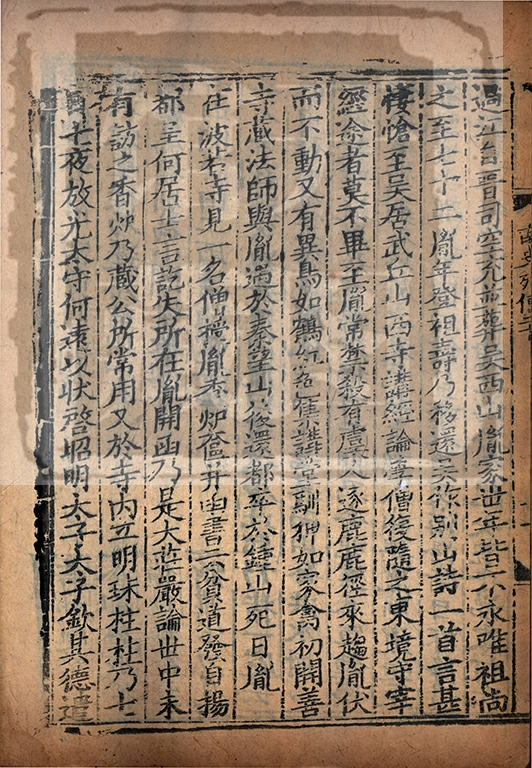 過江自晉司空充並葬吳西山胤家世年皆不永唯祖尚
之至七十二胤年登祖壽乃移還吳作別山詩一首言甚
悽愴至吳居武丘山西寺講經論學僧復隨之東境守宰
經途者莫不畢至胤常禁殺有虞人逐鹿鹿徑來趨胤伏
而不動又有異鳥如鶴紅色集講堂馴狎如家禽初開善
寺藏法師與胤遇於秦望山後還都卒於鍾山死日胤
在波若寺見一名僧授胤香炉奩并函書云貧道發自揚
都呈何居士言訖失所在胤開函乃是大莊嚴論世中未
有訪之香炉乃藏公所常用又於寺內立明珠柱柱乃七
日七夜放光太守何遠以狀啓昭明太子太子欽其德遣